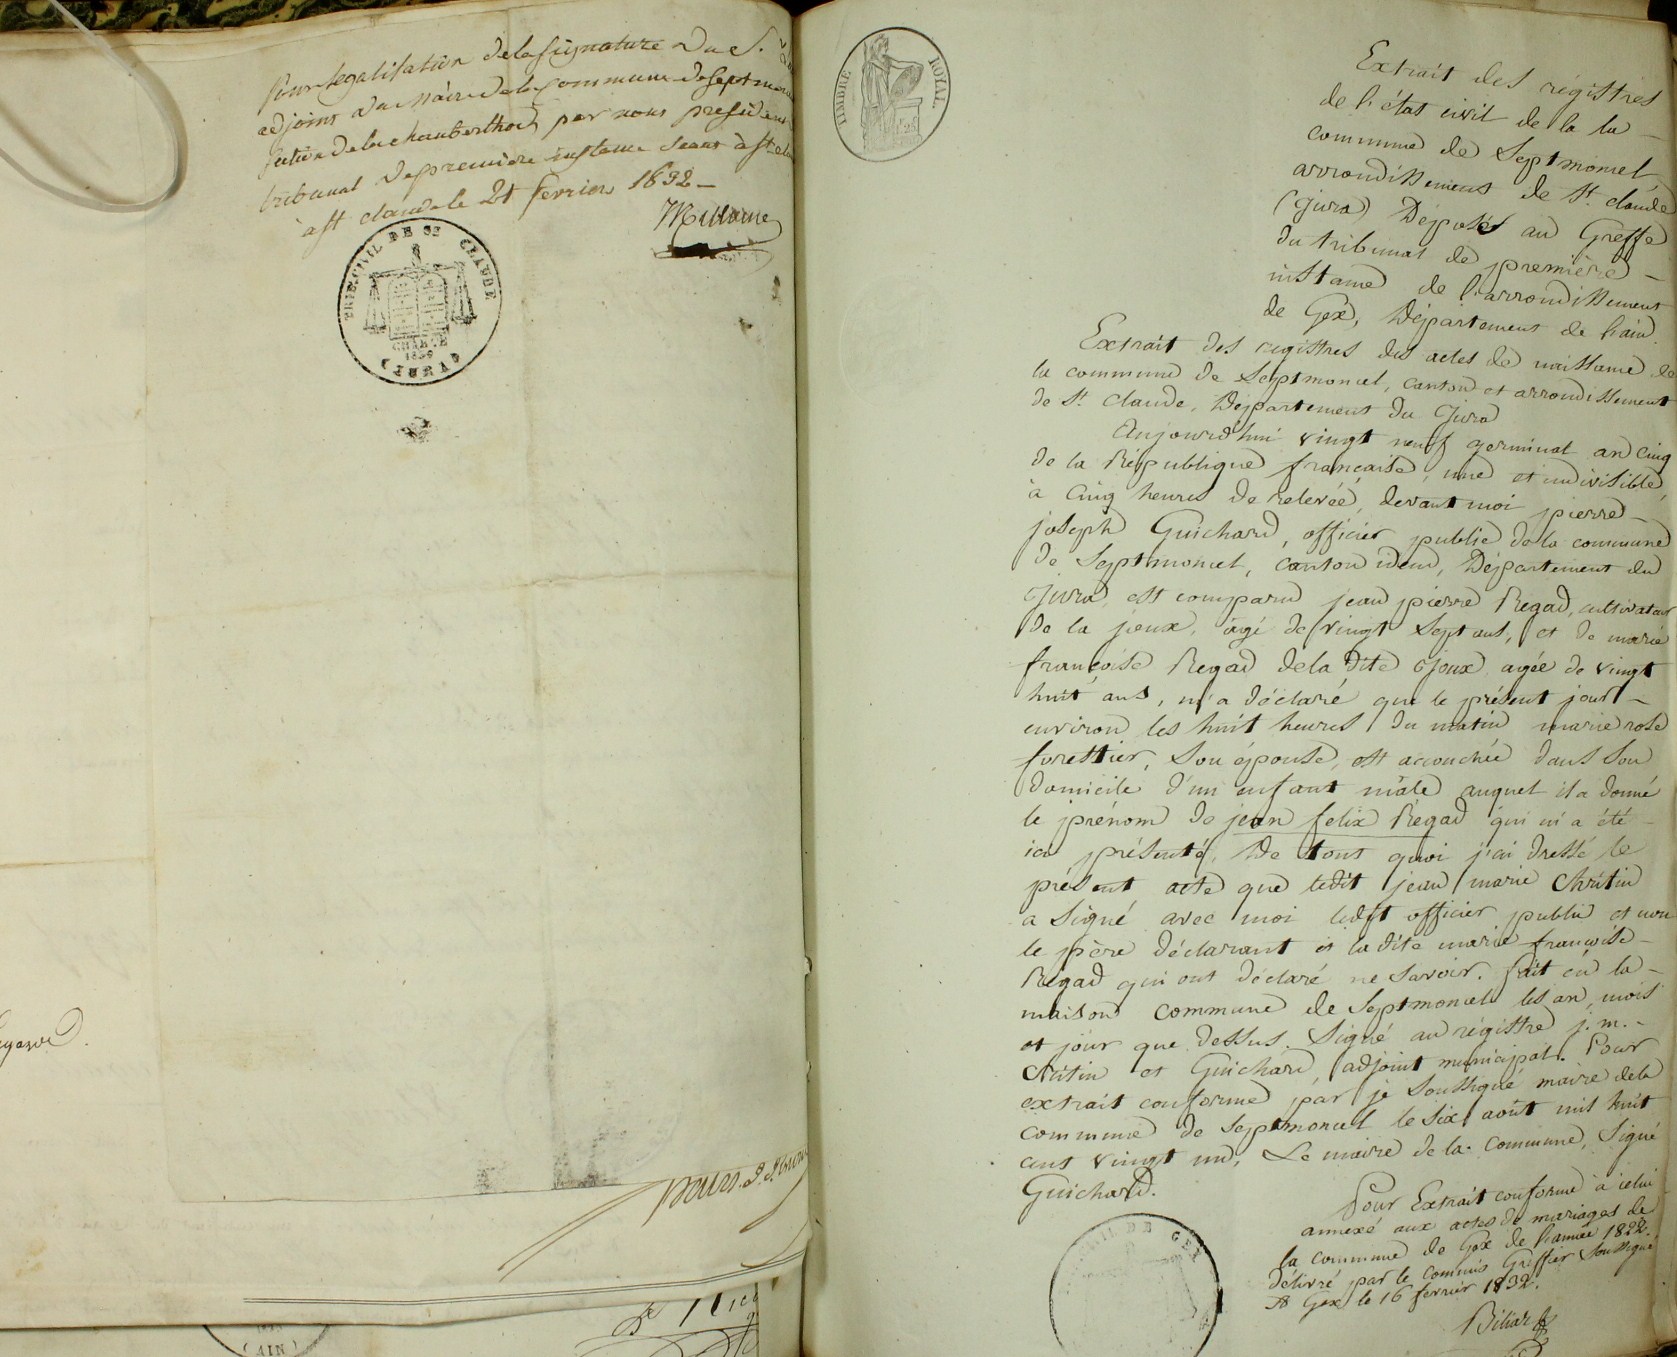 Pour légalisation de la signature du S.
adjoint du Maire de la commune de Septmoncel
section de la chauberthod par nous president
tribunal de premiere instance seant à St
à St claude le 21 fevrier 1832
TRIB. CIVIL DE ST CLAUDE
CHARTE
1830
(JURA)
(AIN)
TIMBRE ROYAL
Extrait des régistres
de l'état civil de la la
commune de Septmoncel,
arrondissement de St. claude
(Jura) Déposés au Greffe
du tribunal de première
instance de l'arrondissement
de Gex, Département de l'ain.
Extrait des registres des actes de naissance de
la commune de Septmoncel, canton et arrondissement
de St. Claude, Département du Jura
Aujourd'hui vingt neuf germinal an cinq
de la République française, une et indivisible,
à cinq heures de relevée, devant moi pierre
joseph Guichard, officier public de la commune
de Septmoncel, canton idem, Département du
Jura, est comparu jean pierre Regad, cultivateur
de la joux, âgé de vingt sept ans, et de marie
françoise Regad de la dite Joux agée de vingt
huit ans, m'a déclaré que le présent jour
environ les huit heures du matin marie rose
forestier, son épouse, est accouchée dans son
domicile d'un enfant mâle auquel il a donné
le prénom de jean felix Régad qui m'a été
ici présenté, De tout quoi j'ai dressé le
présent acte que ledit jean marie Christin
a signé avec moi ledit officier public et non
le père déclarant et la dite marie françoise
Régad qui ont déclaré ne savoir. fait en la
maison commune de Septmoncel les an, mois
et jour que dessus. Signé au régistre j. m.
Cristin et Guichard, adjoint municipal. Pour
extrait conforme par je soussigné maire de la
commune de Septmoncel le six août mil huit
cens vingt un, Le maire de la commune, Signé
Guichard.
Pour Extrait conforme à celui
annexé aux actes de mariages de
la commune de Gex de l'année 1822.
délivré par le commis Greffier soussigné
A Gex le 16 fevrier 1832.
CIVIL DE GEX